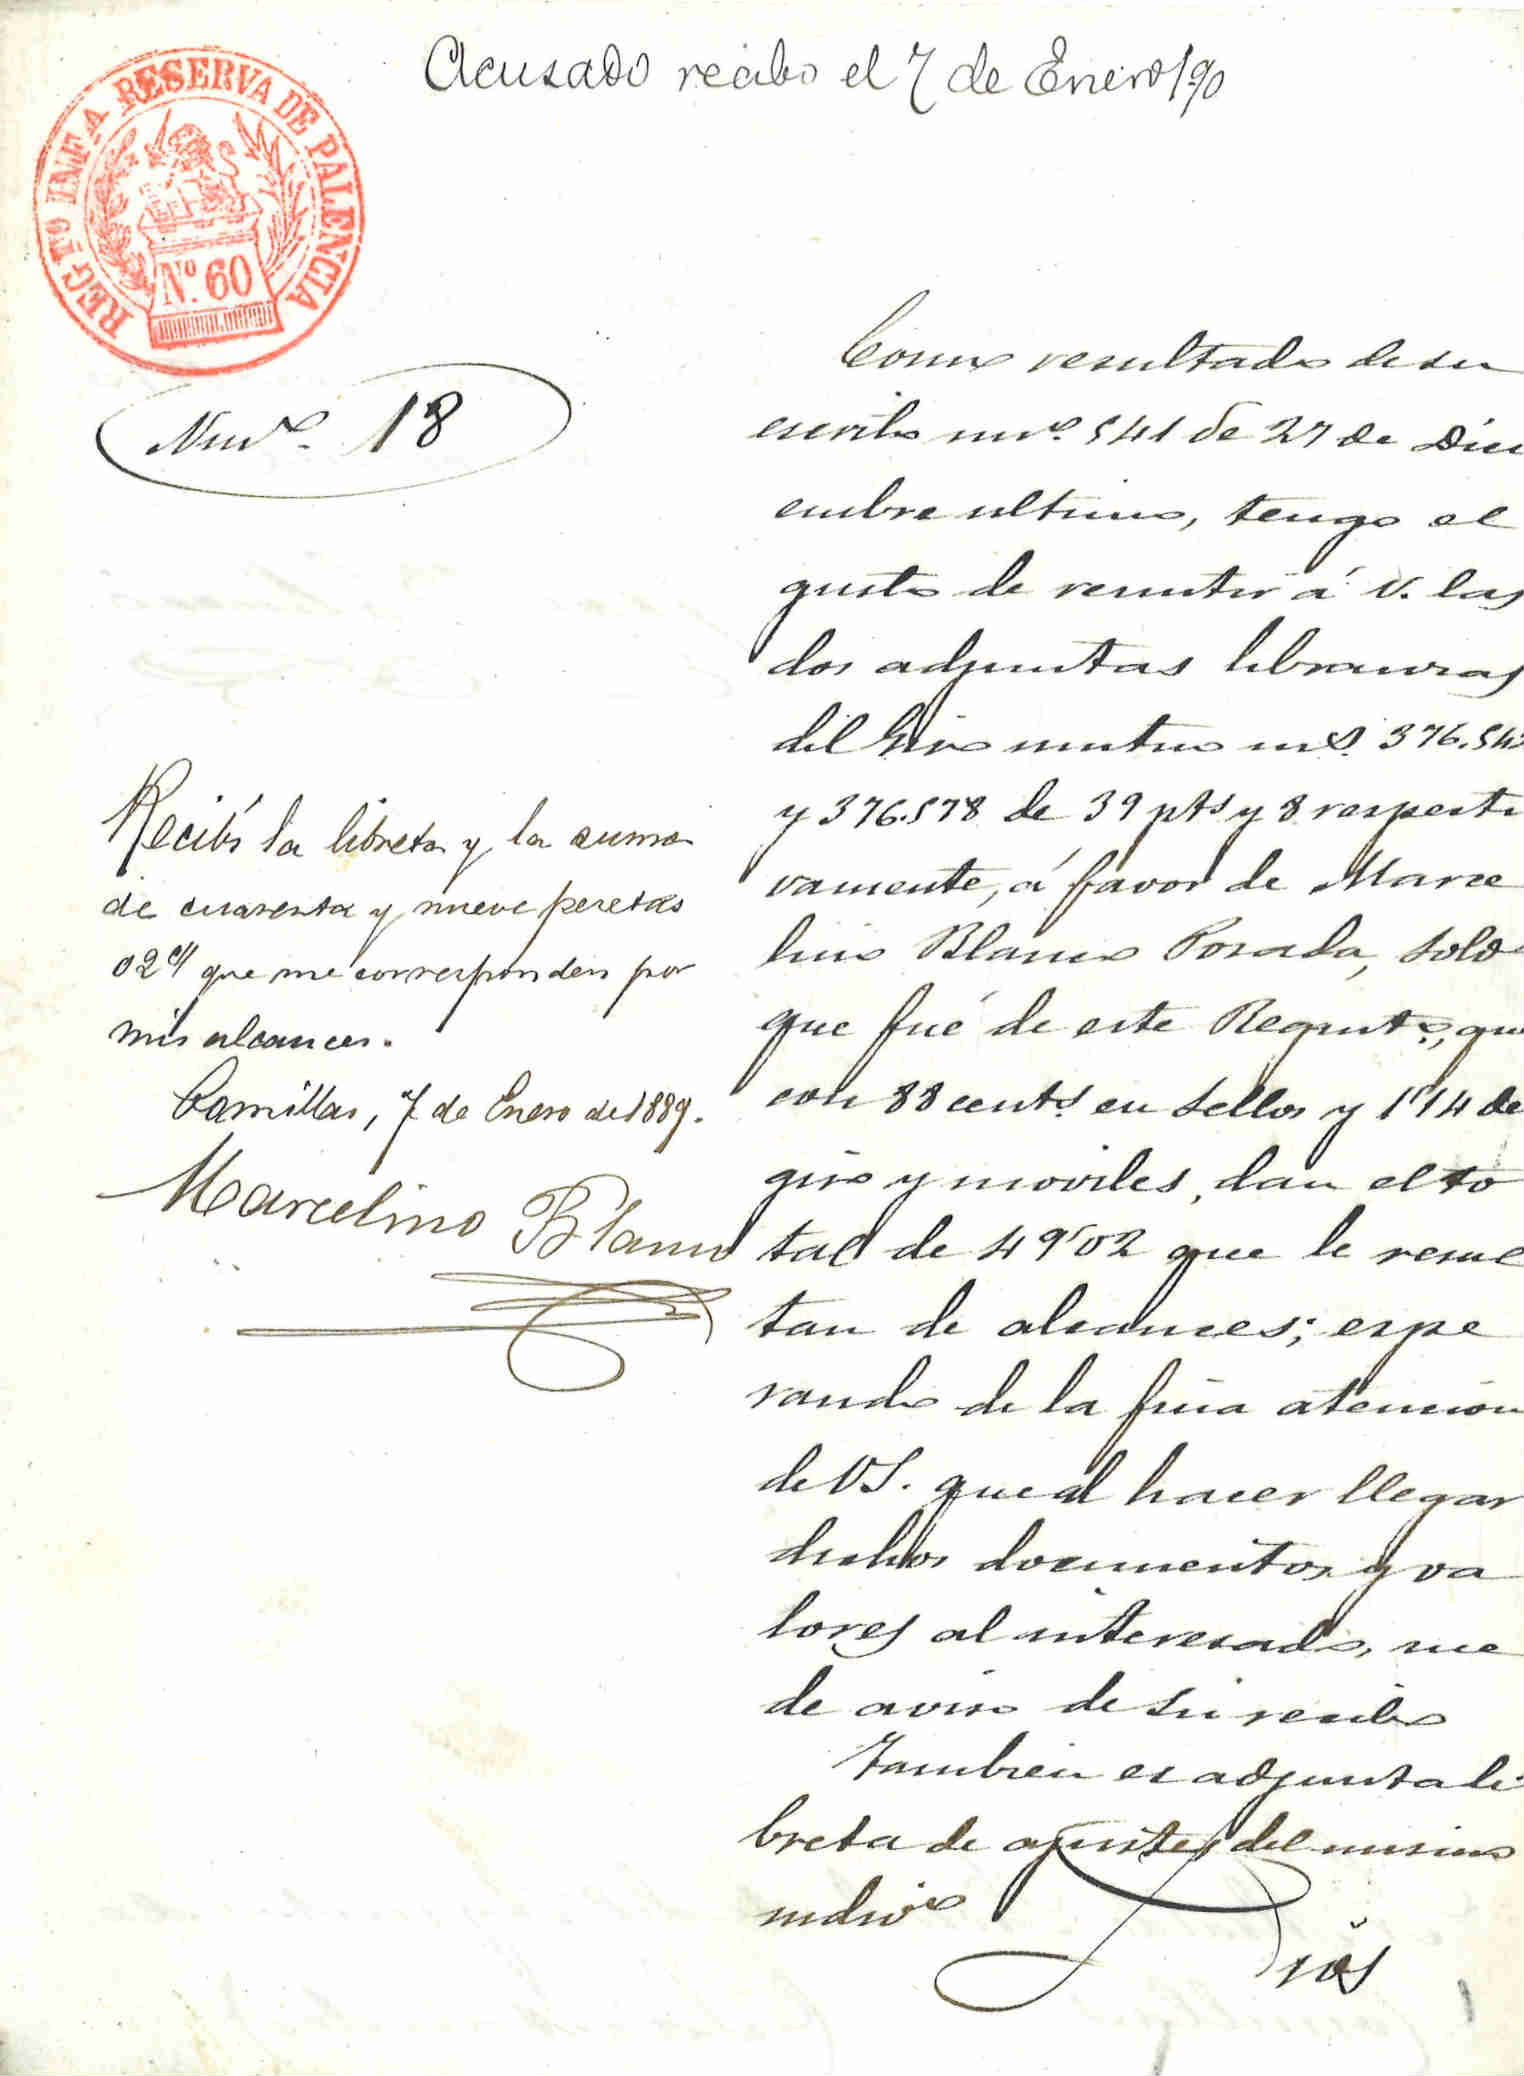 Acusado recibo el 7 de Enero/90
REGTO INFA RESERVA DE PALENCIA
No. 60
Numº. 18
Como resultado de su
escrito numº. 541 de 27 de Dici
embre ultimo, tengo el
gusto de remitir á V. las
dos adjuntas libranzas
del Giro mutuo 376.54
y 376.578 de 39 pts y 8 respecti
vamente, á favor de Marce
lino Blanco Posada, soldo
que fué de este Regimtº., que
con 88 cents. en sellos y 1'14 de
giro y moviles, dan el to
tal de 49'02 que le resul
tan de alcances; espe
rando de la fina atencion
de VS. que al hacer llegar
dichos documentos y va
lores al interesado, me
de aviso de su recibo
Tambien es adjunta li
breta de ajustes del mismo
indivº
Dios
Recibí la libreta y la suma
de cuarenta y nueve pesetas
02 que me corresponden por
mis alcances.
Comillas, 7 de Enero de 1889.
Marcelino Blanco